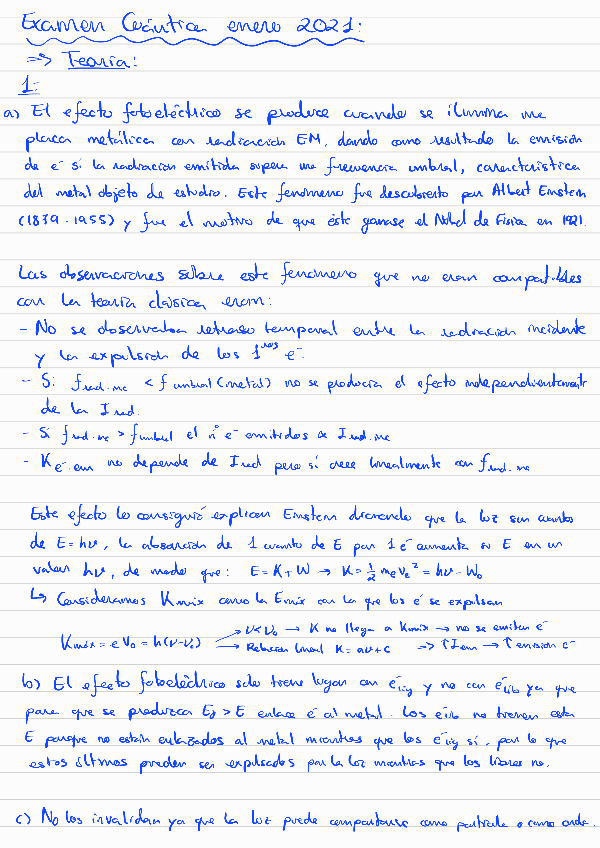 Examen Cuántica enero 2021:
=> Teoría:
1:
a) El efecto fotoeléctrico se produce cuando se ilumina una
placa metálica con radiación EM, dando como resultado la emisión
de e⁻ si la radiación emitida supera una frecuencia umbral, característica
del metal objeto de estudio. Este fenómeno fue descubierto por Albert Einstein
(1879-1955) y fue el motivo de que éste ganase el Nobel de Física en 1921.
Las observaciones sobre este fenómeno que no eran compatibles
con la teoría clásica eran:
- No se observaba retraso temporal entre la radiación incidente
y la expulsión de los 1ᵉʳᵒˢ e⁻.
- Si f rad.inc < f umbral (metal) no se producía el efecto independientemente
de la I rad.
- Si f rad.inc > f umbral el nº e⁻ emitidos α I rad.inc
- K e⁻ em no depende de I rad pero sí crece linealmente con f rad.inc
Este efecto lo consiguió explicar Einstein diciendo que la luz son cuantos
de E=hν, la absorción de 1 cuanto de E por 1 e⁻ aumenta su E en un
valor hν, de modo que: E = K + W → K = 1/2 m_e v_e² = hν - W₀
↳ Consideramos Kmáx como la Emáx con la que los e⁻ se expulsan
Kmáx = e V₀ = h(ν-ν₀) → ν<ν₀ → K no llega a Kmáx → no se emiten e⁻
→ Relación lineal K = aν + c => ↑I em → ↑ emisión e⁻
b) El efecto fotoeléctrico solo tiene lugar con e⁻ lig y no con e⁻ lib ya que
para que se produzca Eγ > E enlace e⁻ al metal. Los e⁻ lib no tienen esta
E porque no están enlazados al metal mientras que los e⁻ lig sí, por lo que
estos últimos pueden ser expulsados por la luz mientras que los libres no.
c) No los invalidan ya que la luz puede comportarse como partícula o como onda.